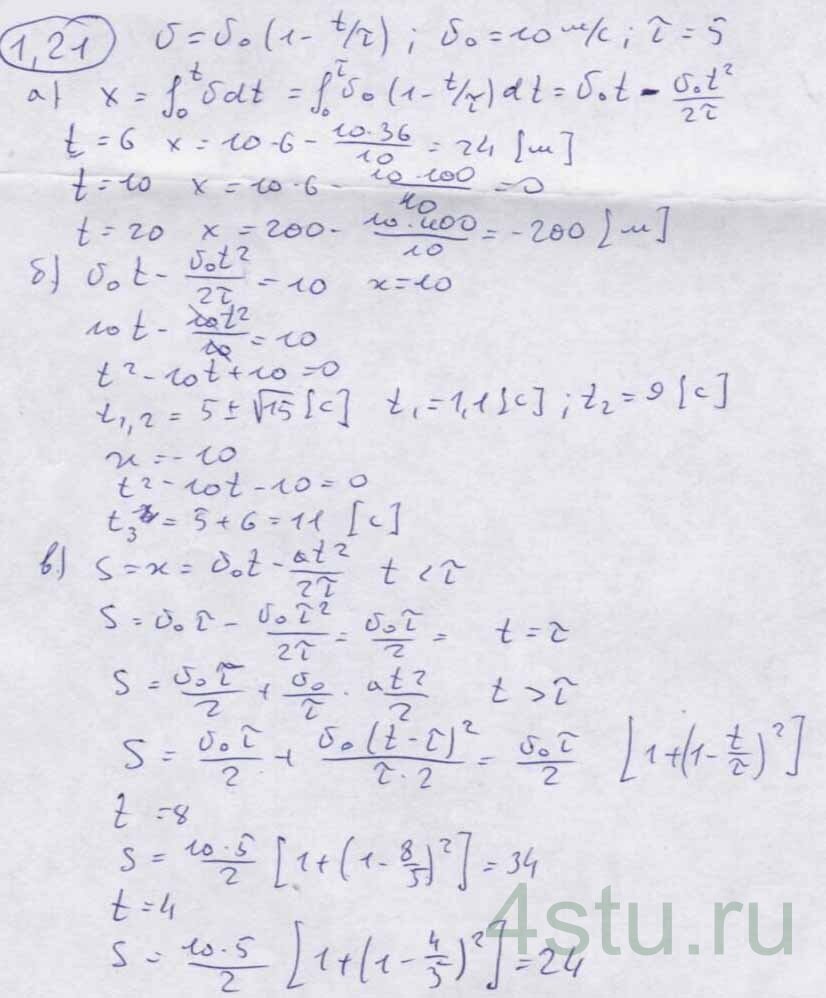 1,21 υ = υ₀ (1 - t/τ) ; υ₀ = 10 м/с ; τ = 5
а) x = ∫₀ᵗ υdt = ∫₀^τ υ₀ (1 - t/τ) dt = υ₀t - υ₀t²/2τ
t = 6 x = 10·6 - 10·36/10 = 24 [м]
t = 10 x = 10·6 - 10·100/10 = 0
t = 20 x = 200 - 10·400/10 = -200 [м]
б) υ₀t - υ₀t²/2τ = 10 x = 10
10t - 10t²/10 = 10
t² - 10t + 10 = 0
t₁,₂ = 5 ± √15 [с] t₁ = 1,1 [с] ; t₂ = 9 [с]
x = -10
t² - 10t - 10 = 0
t₃ = 5 + 6 = 11 [с]
в) S = x = υ₀t - at²/2τ t < τ
S = υ₀τ - υ₀τ²/2τ = υ₀τ/2 = t = τ
S = υ₀τ/2 + υ₀/τ · at²/2 t > τ
S = υ₀τ/2 + υ₀(t - τ)²/τ·2 = υ₀τ/2 [1 + (1 - t/τ)²]
t = 8
S = 10·5/2 [1 + (1 - 8/5)²] = 34
t = 4
S = 10·5/2 [1 + (1 - 4/5)²] = 24
4stu.ru